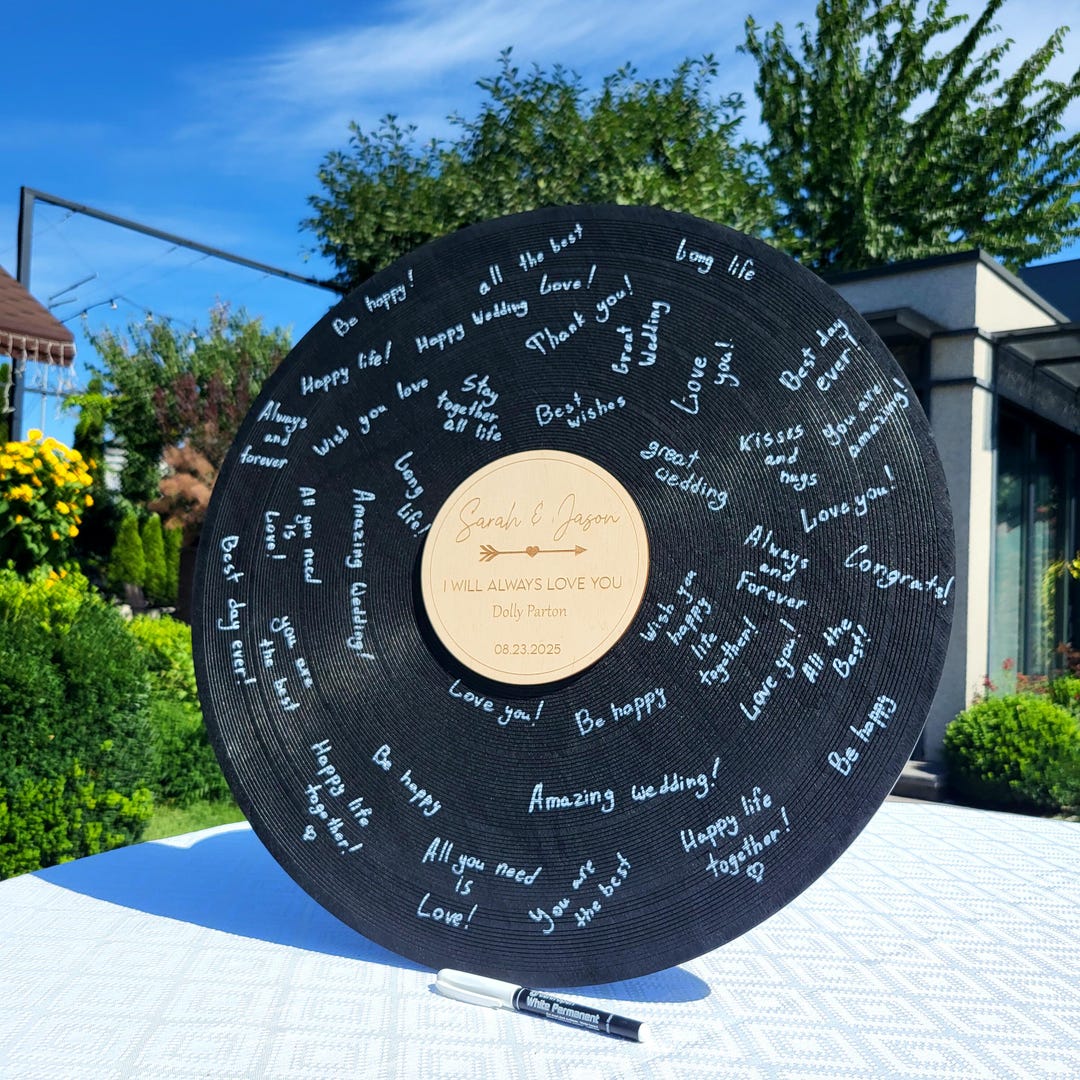 Be happy!
all the best
Long life
Happy Wedding
Love!
Thank you!
Great
Wedding
Happy life!
Wish you love
Stay
together
all life
Best
wishes
Love
you!
Best day
ever!
Always
and
forever
Long
life!
great
wedding
Kisses
and
hugs
you are
amazing!
Love you!
All you need
is
Love!
Amazing Wedding!
Sarah & Jason
I WILL ALWAYS LOVE YOU
Dolly Parton
08.23.2025
Always
and
Forever
Congrats!
Best day ever!
you are
the best
Wish you
happy
life
together!
Love you!
All the
Best!
Love you!
Be happy
Be happy
Happy life
together!
Be happy
Amazing wedding!
Happy life
together!
All you need
is
Love!
you are
the best
White Permanent